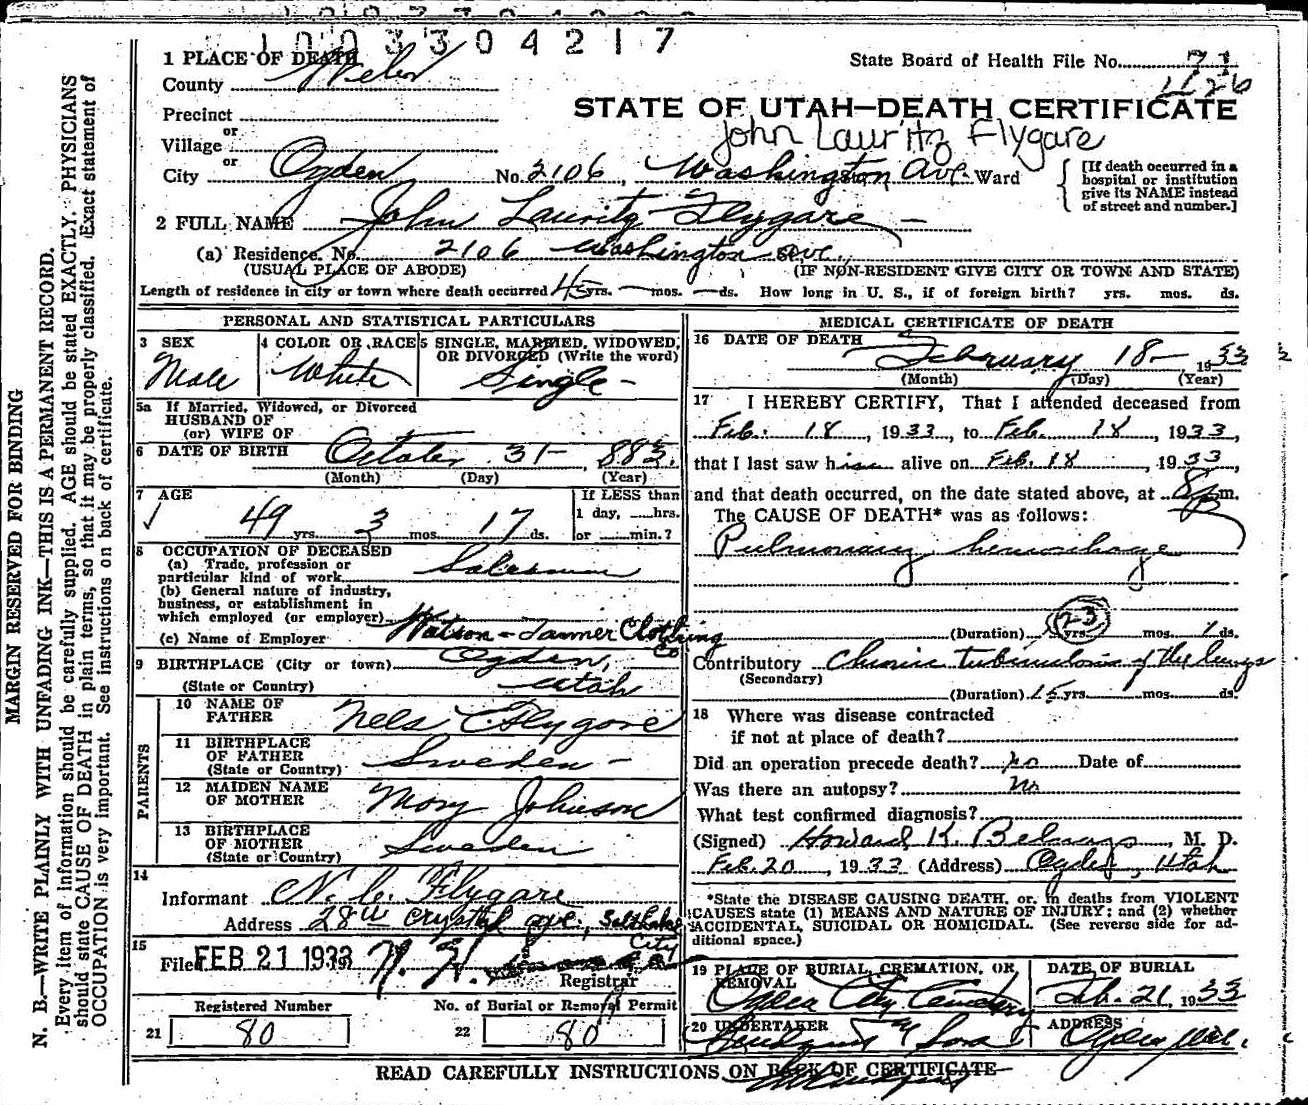 1003304217
1 PLACE OF DEATH
County Weber
State Board of Health File No. 71
1126
Precinct
STATE OF UTAH—DEATH CERTIFICATE
or
Village
John Lauritz Flygare
or
City Ogden No. 2106, Washington Ave. Ward
[If death occurred in a
hospital or institution
give its NAME instead
of street and number.]
2 FULL NAME John Lauritz Flygare —
(a) Residence. No. 2106 Washington ave.,
(USUAL PLACE OF ABODE) (IF NON-RESIDENT GIVE CITY OR TOWN AND STATE)
Length of residence in city or town where death occurred 45 yrs. — mos. — ds. How long in U. S., if of foreign birth? yrs. mos. ds.
PERSONAL AND STATISTICAL PARTICULARS
3 SEX
Male
4 COLOR OR RACE
White
5 SINGLE, MARRIED, WIDOWED,
OR DIVORCED (Write the word)
Single -
5a If Married, Widowed, or Divorced
HUSBAND OF
(or) WIFE OF
6 DATE OF BIRTH October 31 - , 883.
(Month) (Day) (Year)
7 AGE
✓ 49 yrs. 3 mos. 17 ds.
If LESS than
1 day, ___hrs.
or ___min.?
8 OCCUPATION OF DECEASED
(a) Trade, profession or
particular kind of work Salesman
(b) General nature of industry,
business, or establishment in
which employed (or employer)
(c) Name of Employer Watson-Tanner Clothing
Co
9 BIRTHPLACE (City or town) Ogden,
(State or Country) Utah
PARENTS
10 NAME OF
FATHER Nels C Flygare
11 BIRTHPLACE
OF FATHER
(State or Country) Sweden -
12 MAIDEN NAME
OF MOTHER Mary Johnson
13 BIRTHPLACE
OF MOTHER
(State or Country) Sweden
14
Informant N. C. Flygare
Address Crystal ave., Salt Lake
City
15
Filed FEB 21 1933 19
Registrar
Registered Number
21 80
No. of Burial or Removal Permit
22 80
MEDICAL CERTIFICATE OF DEATH
16 DATE OF DEATH
February 18 - 1933
(Month) (Day) (Year)
17 I HEREBY CERTIFY, That I attended deceased from
Feb. 18, 1933, to Feb. 18, 1933,
that I last saw him alive on Feb. 18, 1933,
and that death occurred, on the date stated above, at 8 p m.
The CAUSE OF DEATH* was as follows:
Pulmonary hemorrhage
(Duration) 23 yrs. mos. 1 ds.
Contributory Chronic tuberculosis of the lungs
(Secondary)
(Duration) 15 yrs. mos. ds.
18 Where was disease contracted
if not at place of death?
Did an operation precede death? no Date of
Was there an autopsy? No
What test confirmed diagnosis?
(Signed) Howard K. Belnap, M. D.
Feb. 20, 1933 (Address) Ogden, Utah
*State the DISEASE CAUSING DEATH, or, in deaths from VIOLENT
CAUSES state (1) MEANS AND NATURE OF INJURY; and (2) whether
ACCIDENTAL, SUICIDAL OR HOMICIDAL. (See reverse side for ad-
ditional space.)
19 PLACE OF BURIAL, CREMATION, OR
REMOVAL
Ogden City Cemetery
DATE OF BURIAL
Feb. 21, 1933
20 UNDERTAKER
& Sons
ADDRESS
Ogden, Utah.
READ CAREFULLY INSTRUCTIONS ON BACK OF CERTIFICATE
MARGIN RESERVED FOR BINDING
N. B.—WRITE PLAINLY WITH UNFADING INK—THIS IS A PERMANENT RECORD.
Every item of information should be carefully supplied. AGE should be stated EXACTLY. PHYSICIANS
should state CAUSE OF DEATH in plain terms, so that it may be properly classified. Exact statement of
OCCUPATION is very important. See instructions on back of certificate.